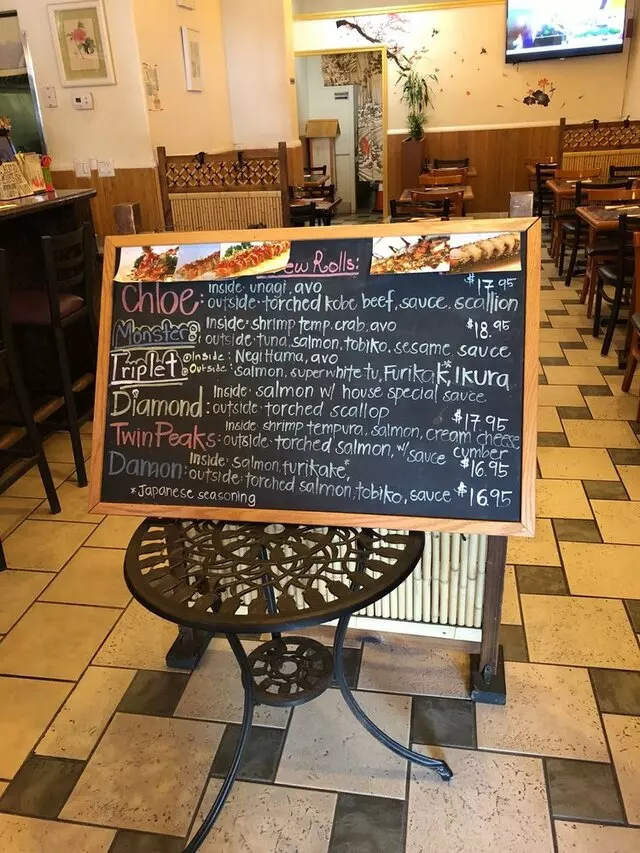 ew Rolls:
Chloe: inside: unagi, avo $17.95
outside: torched kobe beef, sauce, scallion
Monster: Inside: shrimp temp. crab, avo $18.95
outside: tuna, salmon, tobiko, sesame, sauce
Triplet: Inside: Negi Hama, avo
Outside: salmon, super white tu, Furikak*, Ikura
Diamond: Inside: salmon w/ house special sauce
outside: torched scallop $17.95
Twin Peaks: Inside: shrimp tempura, salmon, cream cheese
outside: torched salmon, w/ sauce cumber
Damon: Inside: salmon, furikake*, $16.95
outside: torched salmon, tobiko, sauce $16.95
*Japanese seasoning